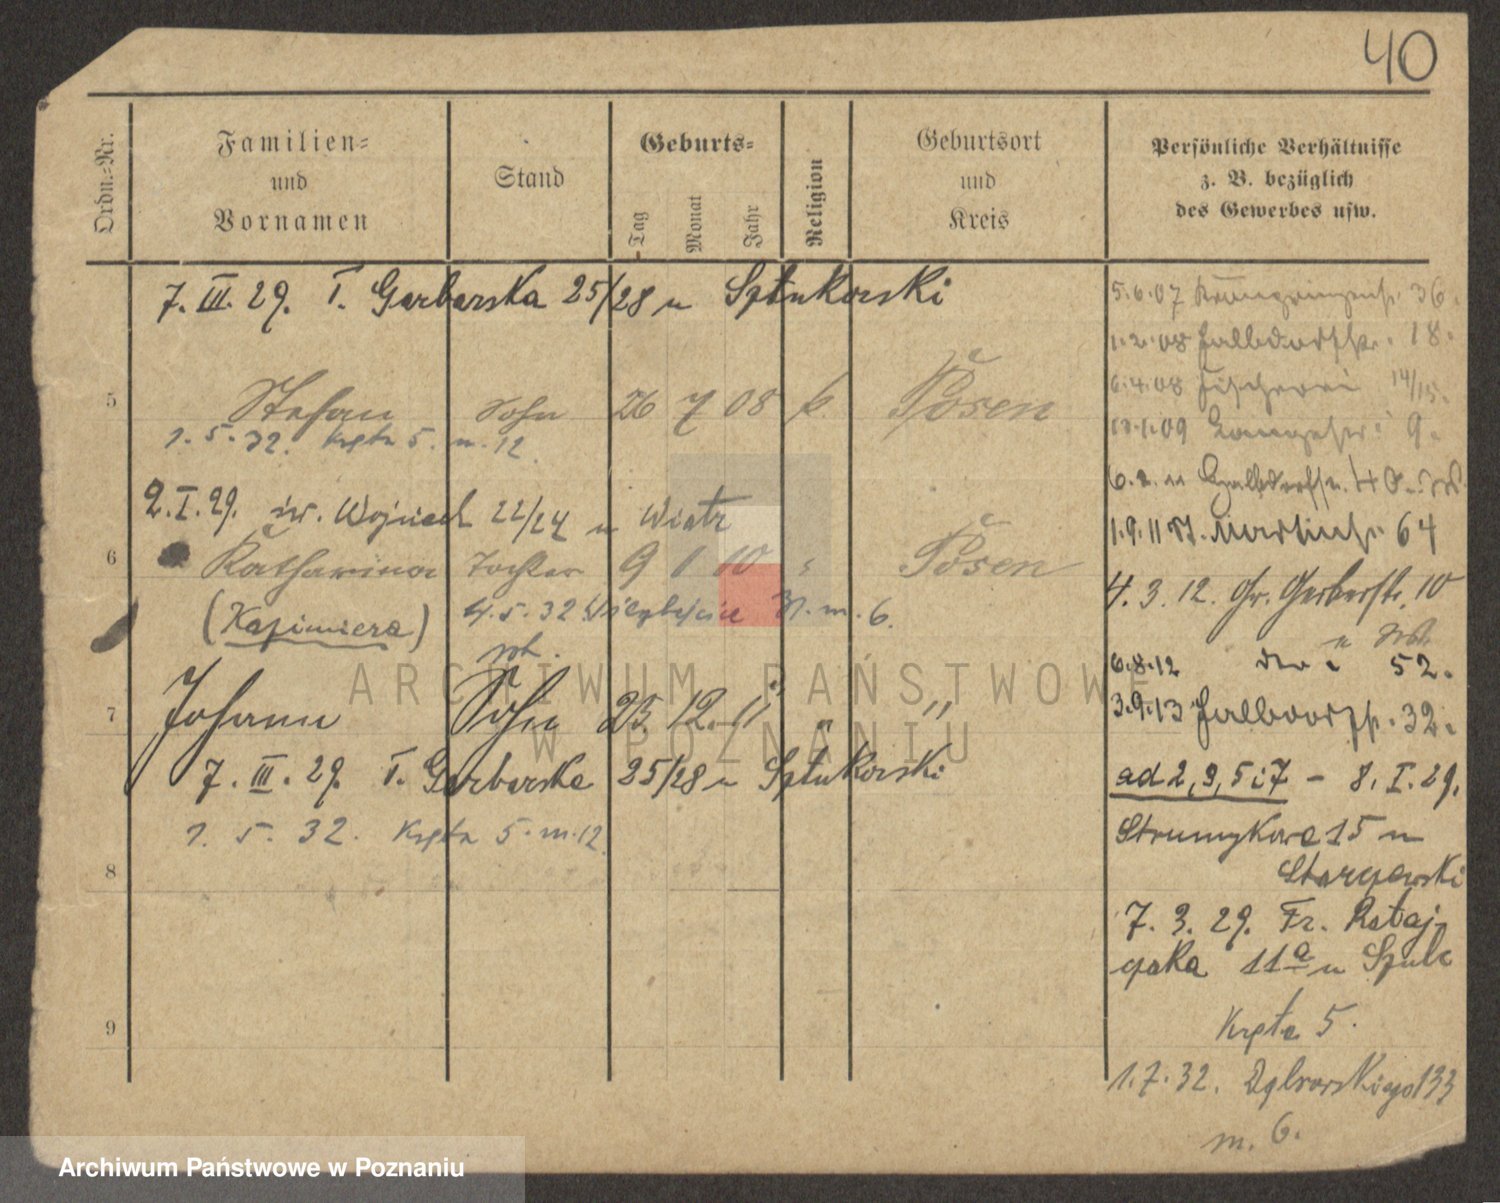 40
Ordn.-Nr.
Familien-
und
Vornamen
Stand
Geburts-
Tag
Monat
Jahr
Religion
Geburtsort
und
Kreis
Persönliche Verhältnisse
z. B. bezüglich
des Gewerbes usw.
7. III. 29. T. Garbarska 25/28 u Sztukorski
5 Stefan Sohn 26 7 08 k. Posen
1. 5. 32. Kręta 5. m. 12.
2. I. 29. św. Wojciech 22/24 u Wiatr
6 Katharina Tochter 9 1 10 " Posen
(Kazimiera) 4. 5. 32 m. 6.
7 Johann Sohn 23. 12. 11 " "
7. III. 29. T. Garbarska 25/28 u Sztukorski
1. 5. 32. Kręta 5. m. 12.
8
9
5.6.07 Kronprinzenstr. 36.
1.2.08 Halbdorfstr. 18.
6.4.08 Fischerei 14/15.
18.1.09 9.
6.2.11 Halbdorfstr. 40
1.9.11 St. Martinstr. 64
4. 3. 12. Gr. Gerberstr. 10
6.8.12 52.
3.9.13 Halbdorfstr. 32.
ad 2, 3, 5 i 7 – 8. I. 29.
Strumykowa 15 u
7. 3. 29. Fr. Rataj-
czaka 11a u Szulc
Kręta 5.
1. 7. 32. Dąbrowskiego 133
m. 6.
ARCHIWUM PAŃSTWOWE
W POZNANIU
Archiwum Państwowe w Poznaniu